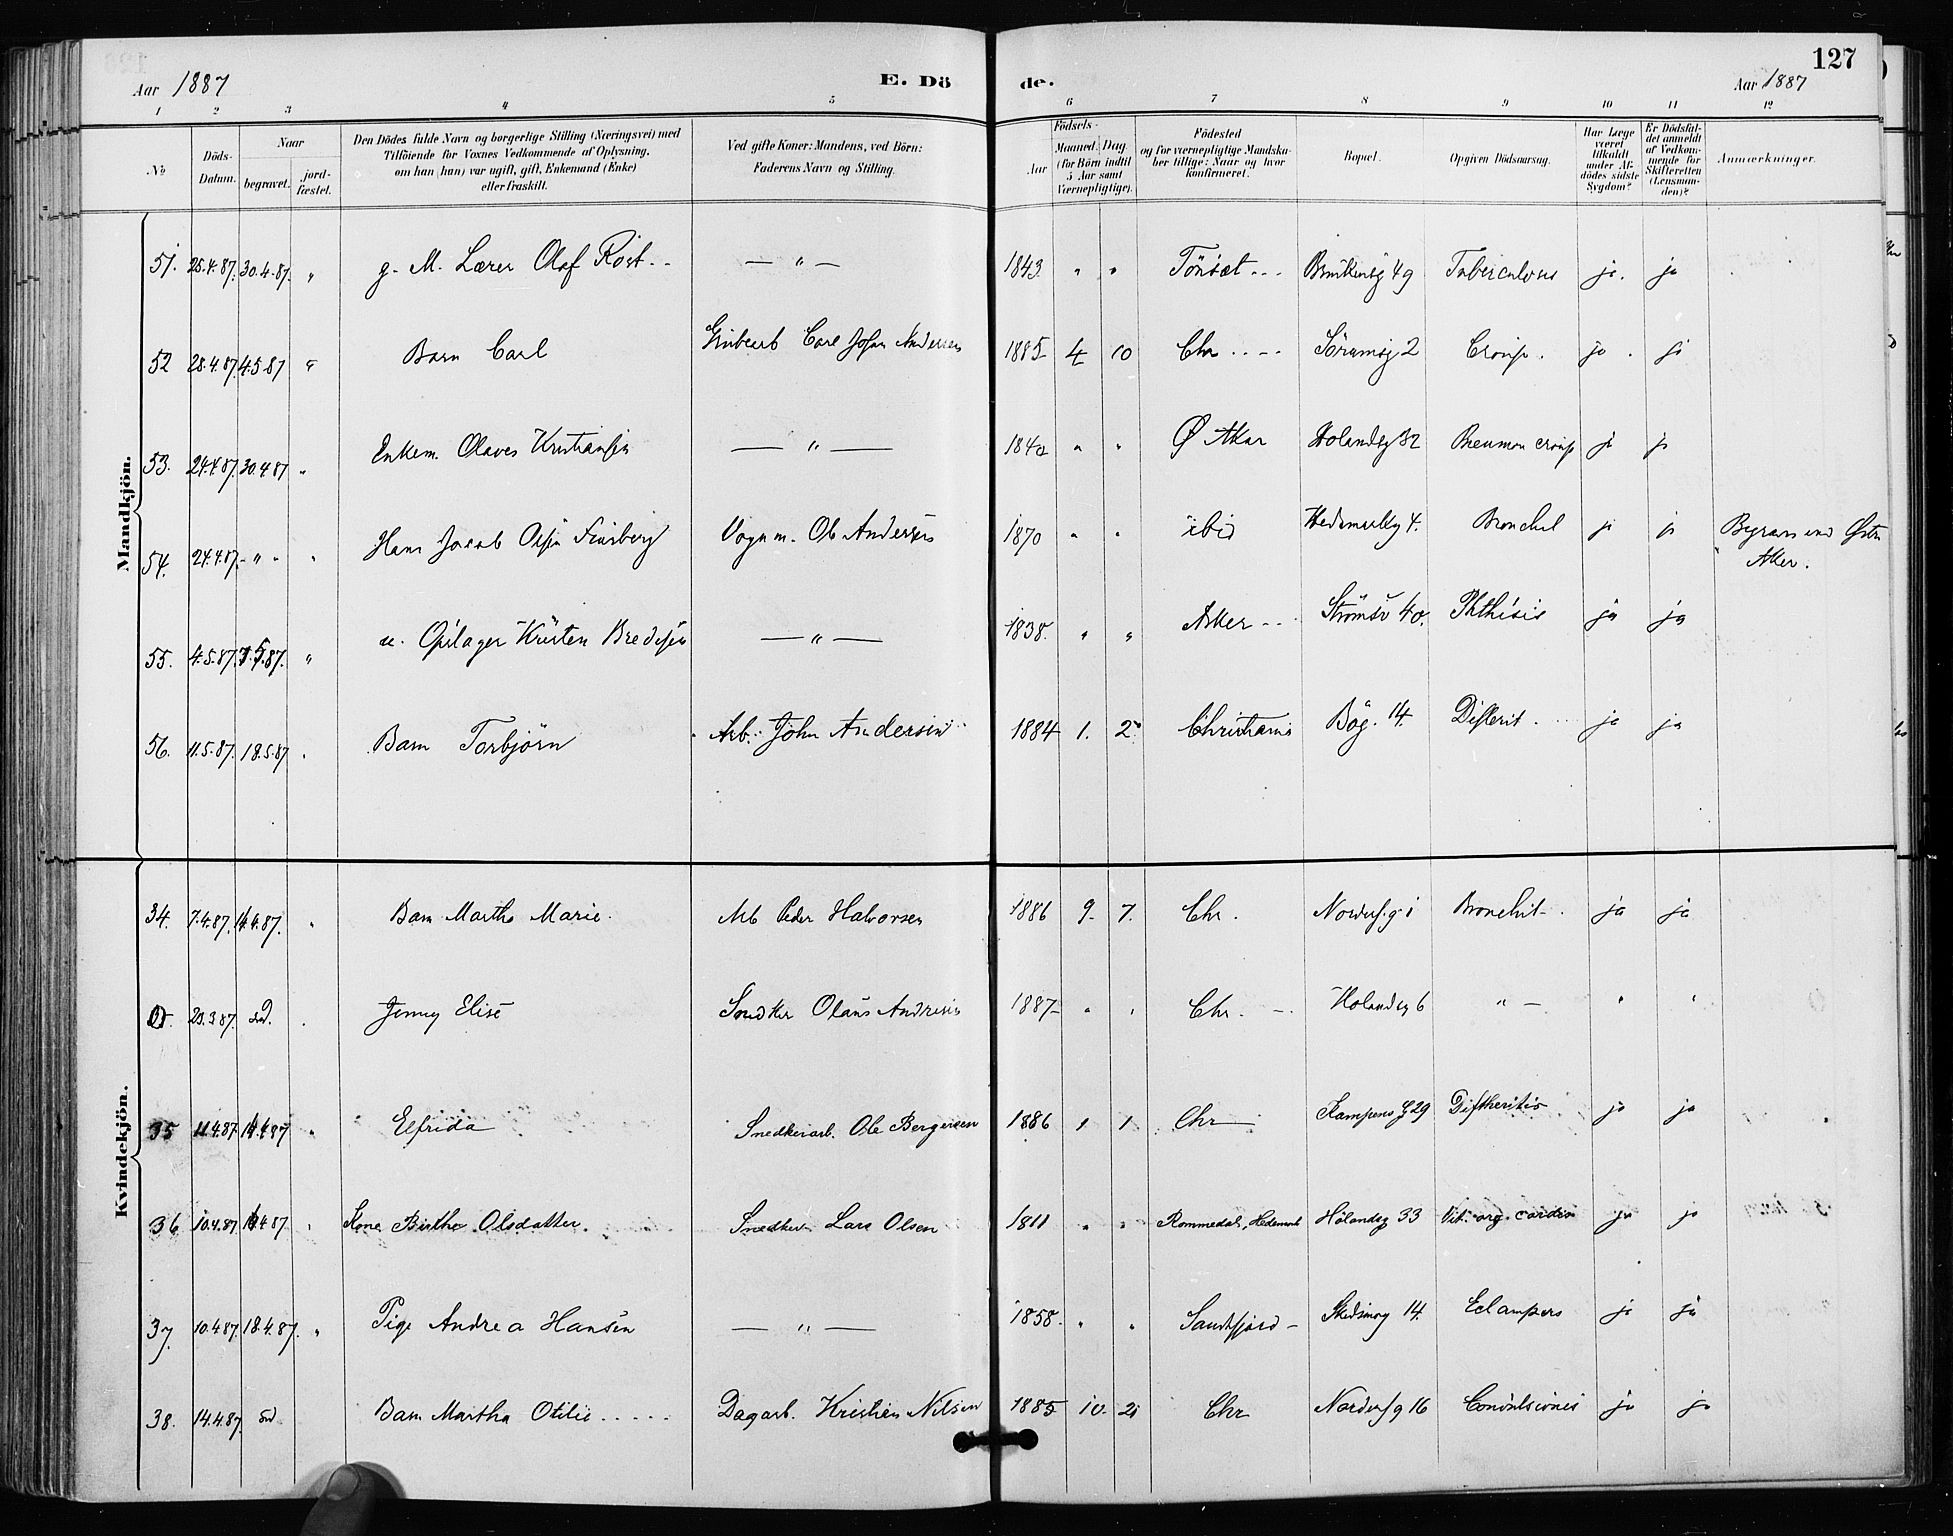 127
Aar 1887 E. Dö de. Aar 1887
1 2 3 4 5 6 7 8 9 10 11 12
No
Döds-Datum.
Naar
begravet.
jord-fæstet.
Den Dödes fulde Navn og borgerlige Stilling (Næringsvei) med
Tilföiende for Voxnes Vedkommende af Oplysning,
om han (hun) var ugift, gift, Enkemand (Enke)
eller fraskilt.
Ved gifte Koner: Mandens, ved Börn:
Faderens Navn og Stilling.
Födsels-
Aar
Maaned. Dag
(for Börn indtil
5 Aar samt
Værnepligtige).
Födested
og for værnepligtige Mandska-
ber tillige: Naar og hvor
konfirmeret.
Bopæl.
Opgiven Dödsaarsag.
Har Læge
været
tilkaldt
under Af-
dödes sidste
Sygdom?
Er Dödsfal-
det anmeldt
af Vedkom-
mende for
Skifteretten
(Lensman-
den)?
Anmærkninger.
Mandkjön.
51. 25.4.87. 30.4.87. " g. M. Lærer Olaf Rost — " — 1843 " " Tönset Tuberculosis ja. ja
52 28.4.87 4.5.87 " Barn Carl Carl Johan Andersen 1885 4 10 Chr Sörumsg 2 Croup. ja. ja
53. 24.4.87. 30.4.87 " Enkem. Olaves Kristiansen — " — " " Ø Aker Holandsg 32 Pneumon croup ja ja
54. 24.4.87. - " - " Hans Jacob Vognm. Ole Andersen 1870 " " ibid Hedemarksg 4. Bronchit ja ja Begraves ved Østre
Aker.
55. 4.5.87. 7.5.87. " u. Kristen Bredesen — " — 1838. " " Asker Strömsv 40. Phthisis ja ja
56. 11.5.87. 18.5.87 " Barn Torbjörn Arb. John Andersen 1884 1. 2 Christiania Bög. 14. Difterit. ja ja
Kvindekjön.
34. 7.4.87. 14.4.87. " Barn Martha Marie. Arb Peder Halvorsen 1886 9. 7. Chr. Norderh.g 1 Bronchit ja ja
23.3.87. Jenny Elise Snedker Olaus Andresen 1887 " " Chr. Holandsg 6 " — " "
35 11.4.87 14.4.87 " Elfrida Snedkerarb. Ole Bergersen 1886 1 1 Chr Kampens g 29 Diftheritis ja ja
36 10.4.87 14.4.87 " Kone Birthe Olsdatter. Snedker Lars Olsen 1811 " " Rommedal, Hedemark Hölandsg 33 Vit. org. cordis ja ja
37. 10.4.87. 18.4.87. " Pige Andrea Hansen — " — 1858. " " Sandefjord Skedsmog 14. ja ja
38. 14.4.87. Barn Martha Otilie Dagarb. Kristian Nilsen 1885 10. Chr Norderh g 16 Convulsiones ja ja